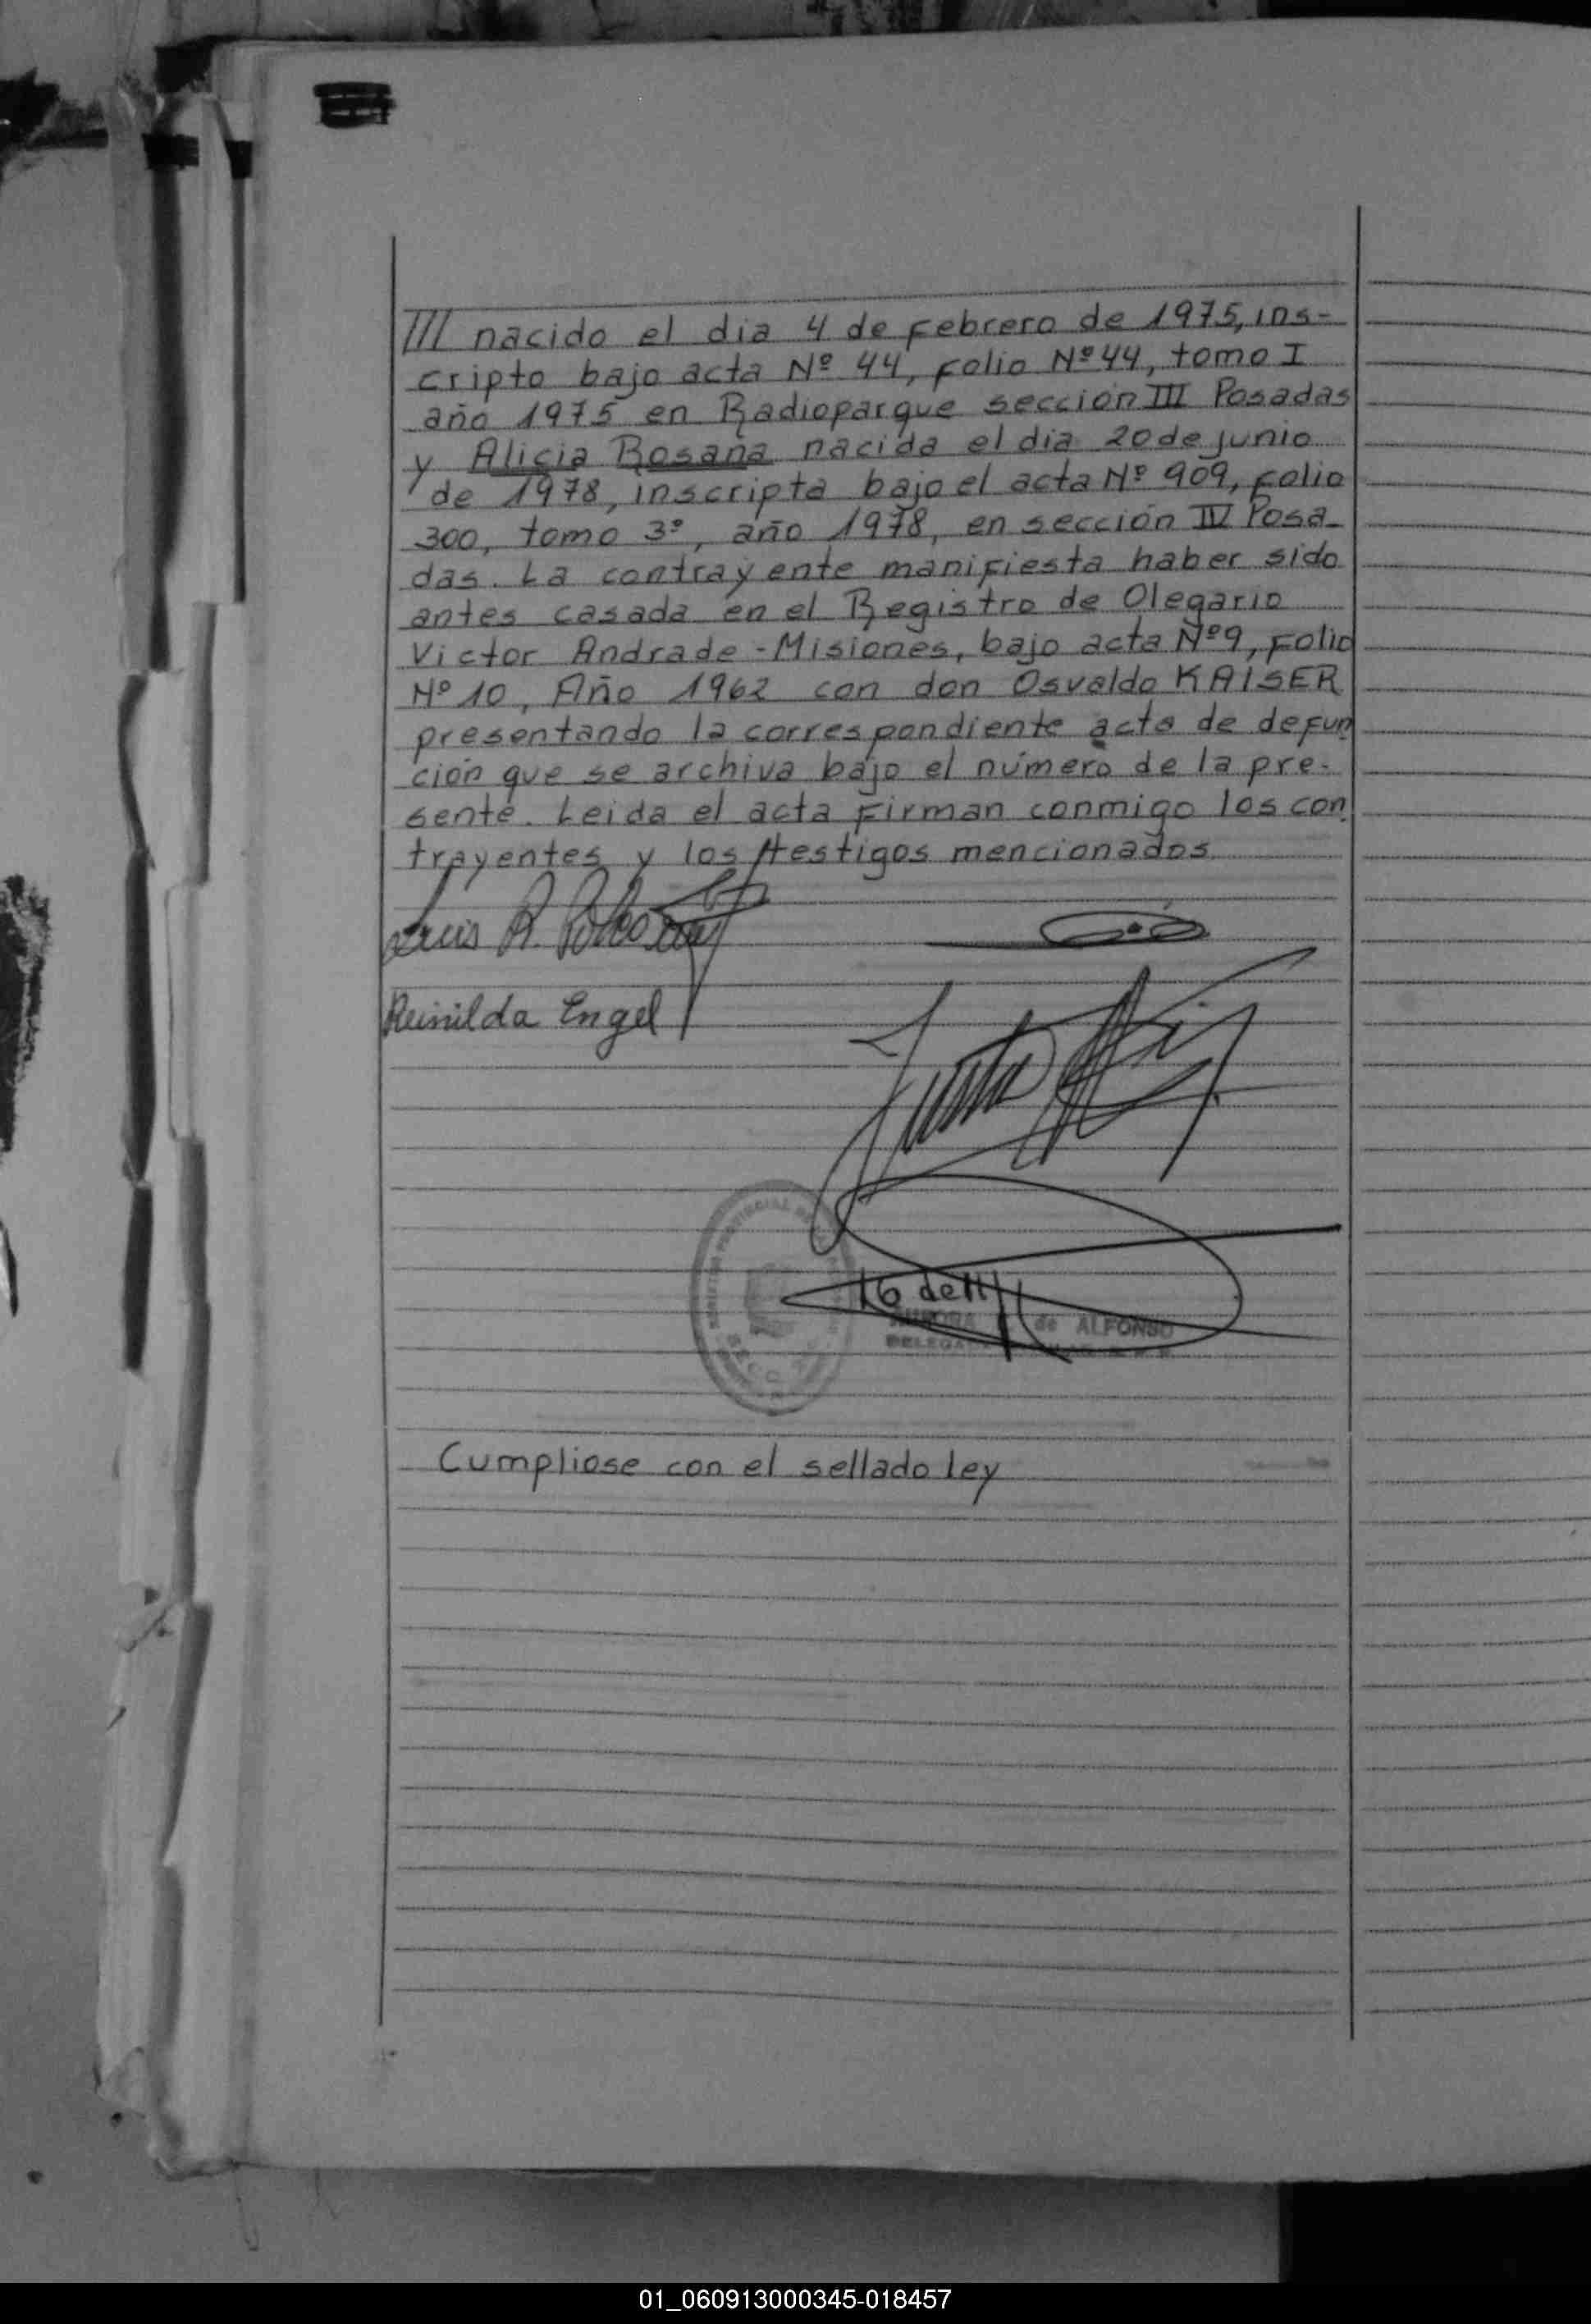 /// nacido el dia 4 de Febrero de 1975, ins-
cripto bajo acta Nº 44, Folio Nº 44, tomo I
año 1975 en Radioparque sección III Posadas
y Alicia Rosana nacida el dia 20 de junio
de 1978, inscripta bajo el acta Nº 909, Folio
300, tomo 3º, año 1978, en sección IV Posa-
das. La contrayente manifiesta haber sido
antes casada en el Registro de Olegario
Victor Andrade - Misiones, bajo acta Nº 9, Folio
Nº 10, Año 1962 con don Osvaldo KAISER
presentando la correspondiente acta de defun
ción que se archiva bajo el número de la pre-
sente. Leida el acta Firman conmigo los con
trayentes y los testigos mencionados.
Luis R.
Reinilda Engel
de ALFONSO
Cumpliose con el sellado ley
01_060913000345-018457